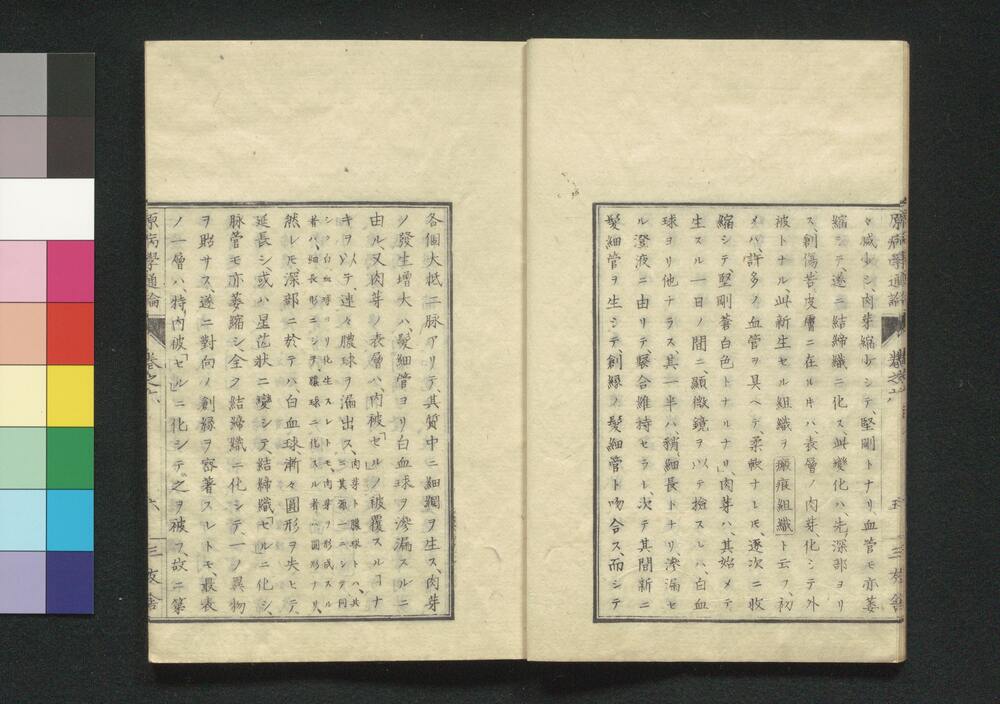 原病學通論
卷之六
五
三友舍
々減少シ、肉芽縮少シテ、堅剛トナリ血管モ亦萎
縮シテ、遂ニ結締織ニ化ス此變化ハ、先ツ深部ヨリ
ス、創傷若シ皮膚ニ在ルキハ、表層ノ肉芽、化シテ外
被トナル此新生セル組織ヲ瘢痕組織ト云フ、初
メハ、許多ノ血管ヲ具ヘテ、柔軟ナレモ、逐次ニ收
縮シテ、堅剛蒼白色トナルナリ、肉芽ハ、其始メテ
生スル一日ノ間ニ、顯微鏡ヲ以テ檢スレハ、白血
球ヨリ他ナラス其一半ハ、稍細長トナリ、滲漏セ
ル澄液ニ由リテ、聚合維持セラレ、次テ其間新ニ
髮細管ヲ生シテ、創緣ノ髮細管ト吻合ス、而シテ
各個大抵ニ脉アリテ、其質中ニ細網ヲ生ス、肉芽
ノ發生增大ハ、髮細管ヨリ白血球ヲ滲漏スルニ
由ル、又肉芽ノ表層ハ、肉被「セルノ被覆スル「ナ
キヲ以テ、連々膿球ヲ漏出ス、肉芽ト膿球トハ、共
ニ其源一ニシテ同
シク白血球ヨリ化生スレトモ、肉芽ヲ形成スル
者ハ、細長形ニシテ、膿球ニ化スル者ハ、圓形ナリ、
然レモ、深部ニ於テハ、白血球、漸々圓形ヲ失ヒテ、
延長シ、或ハ星芒狀ニ變シテ結締織「セル」ニ化シ、
脉管モ亦萎縮シ、全ク結締織ニ化シテ、一ノ異物
ヲ貽サス遂ニ對向ノ創緣ヲ容著スレトモ最表
ノ一層ハ、特ニ内被「セル」ニ化シテ之ヲ被フ、故ニ第
原病學通論
卷之六
六
三友舍